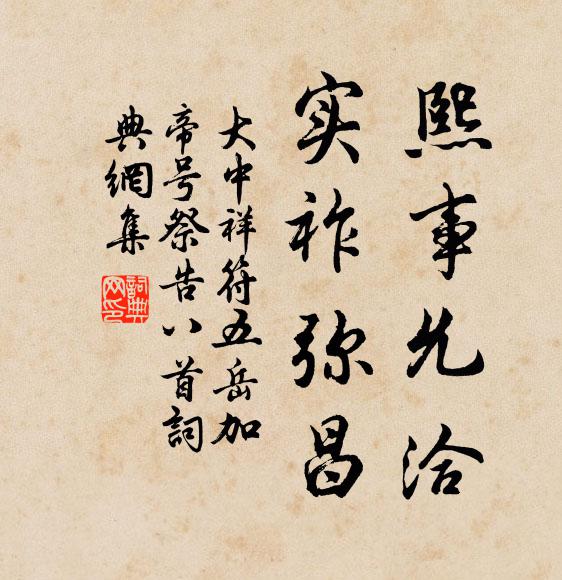 熙事允洽
实祚弥昌
大中祥符五岳加
帝号祭告八首詞
典網集
詞典网印